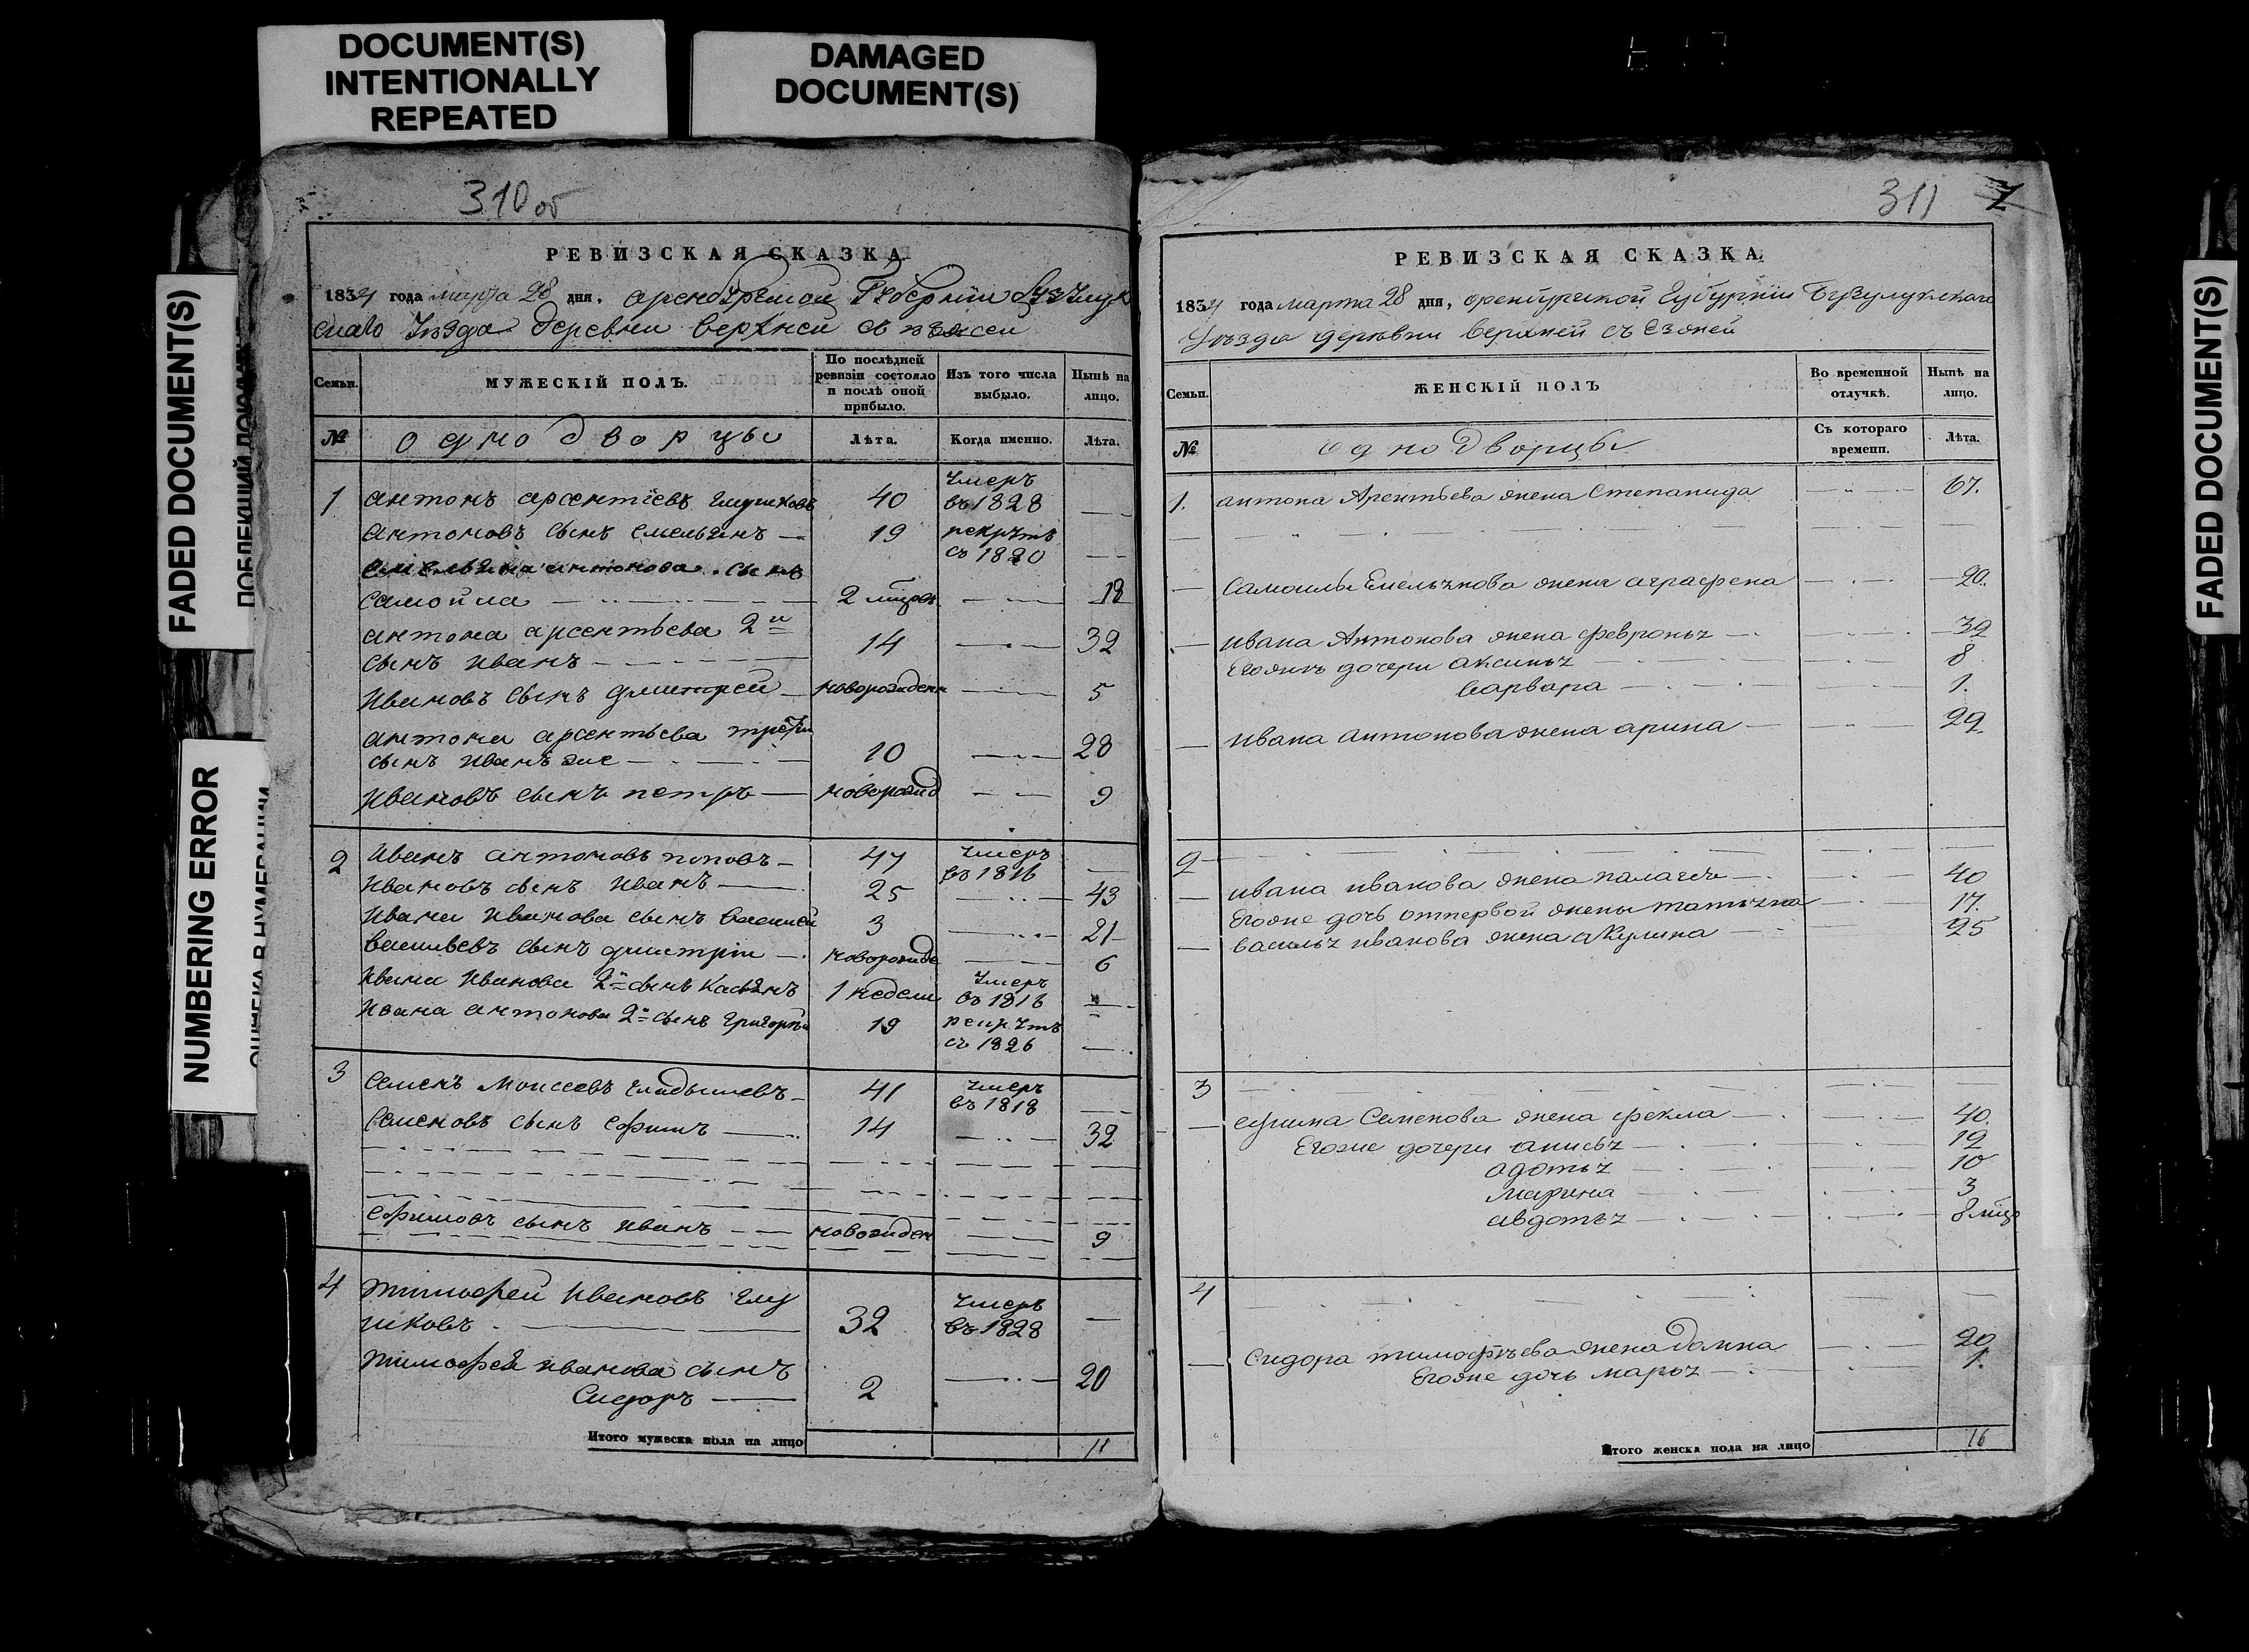 DOCUMENT(S)
INTENTIONALLY
REPEATED
DAMAGED
DOCUMENT(S)
FADED DOCUMENT(S)
NUMBERING ERROR
FADED DOCUMENT(S)
310 об
РЕВИЗСКАЯ СКАЗКА.
1834 года марта 28 дня,
деревни верхней
Семьи. МУЖЕСКІЙ ПОЛЪ. По послѣдней ревизіи состояло и послѣ оной прибыло. Изъ того числа выбыло. Нынѣ на лицо.
№ однодворцы Лѣта. Когда именно. Лѣта.
1 антонъ арсентіевъ глушковъ 40 умеръ въ 1828 —
антоновъ сынъ емельянъ — 19 рекрутъ съ 1820 —
емельяна антонова сынъ
самойла — 2 18
антона арсентьева 2й
сынъ иванъ — 14 — 32
ивановъ сынъ дмитрей — новорожден — 5
антона арсентьева
сынъ иванъ же — 10 — 28
ивановъ сынъ петръ — новорожд — 9
2 иванъ антоновъ поповъ — 47 умеръ въ 1816 —
ивановъ сынъ иванъ — 25 — 43
ивана иванова сынъ василей 3 — 21
васильевъ сынъ дмитріи — новорожде — 6
ивана иванова 2й сынъ касьянъ 1 недели умеръ въ 1816 —
ивана антонова 2й сынъ григорей 19 рекрутъ съ 1826 —
3 семенъ моисеевъ гладышевъ — 41 умеръ въ 1818 —
семеновъ сынъ ефимъ — 14 — 32
ефимовъ сынъ иванъ — новожден — 9
4 тимофей ивановъ глу
шковъ — 32 умеръ въ 1828 —
тимофея иванова сынъ
сидоръ — 2 — 20
Итого мужеска пола на лицо 11
311
РЕВИЗСКАЯ СКАЗКА.
1834 года марта 28 дня, Бузулукскаго
уѣзда деревни верхней
Семьи. ЖЕНСКІЙ ПОЛЪ Во временной отлучкѣ. Нынѣ на лицо.
№ однодворцы Съ котораго времени. Лѣта.
1. антона Арентьева жена степанида — 67.
— самоилы Емельянова жена аграфена — 20.
— ивана Антонова жена февронья —
Егожъ дочери аксинья — 8
варвара — 1.
— ивана антонова жена арина — 29.
2
— ивана иванова жена палагея — 40
Егоже дочь отпервой жены татьяна — 17.
— василья иванова жена акулина — 25
3
— ефима Семенова жена фекла — 40.
Егоже дочери анисья — 12
адотья — 10
марина — 3
авдотья — 8
4
— сидора тимофѣева жена домна — 20
Егоже дочь марья — 1.
Итого женска пола на лицо 16